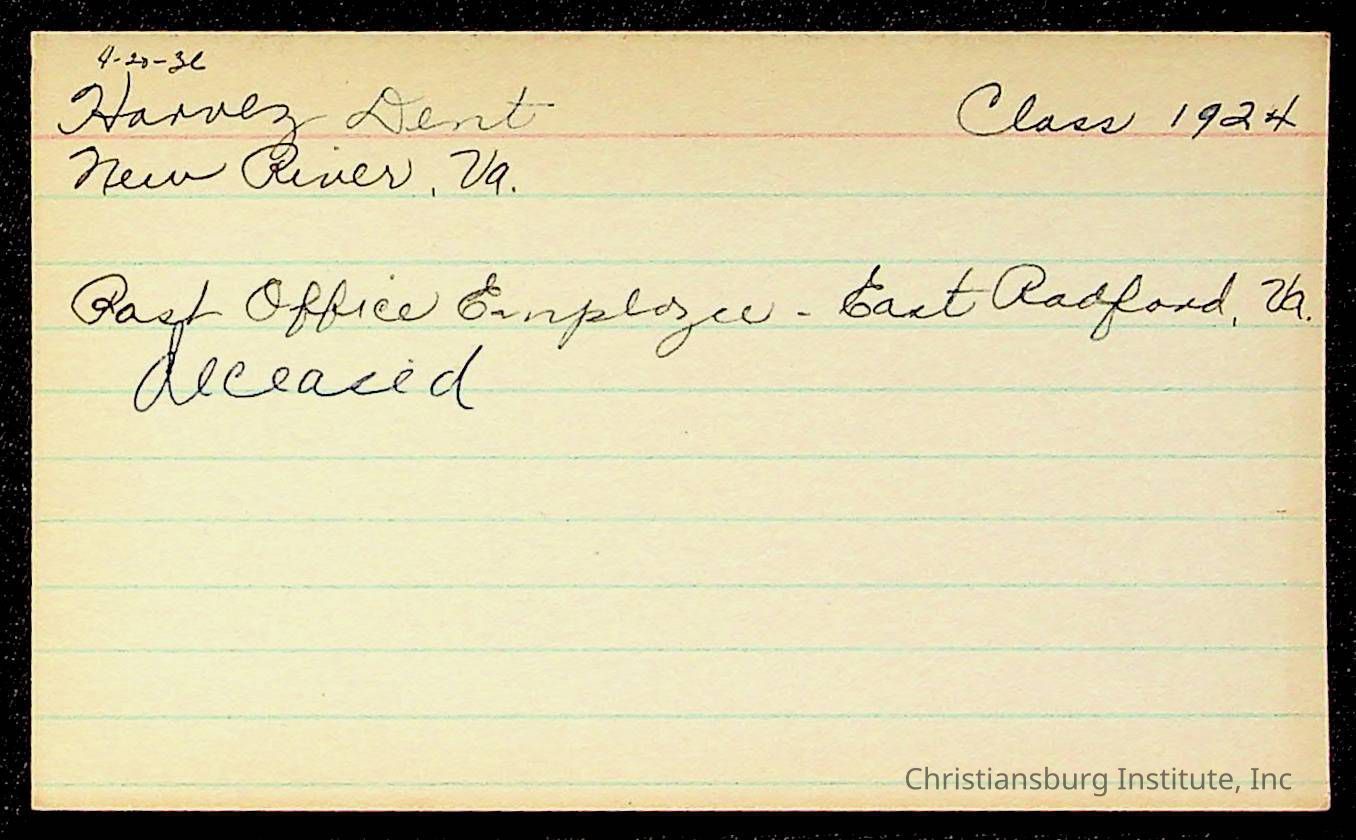 4-20-36
Harvey Dent Class 1924
New River, Va.
Post Office Employee - East Radford, Va.
deceased
Christiansburg Institute, Inc